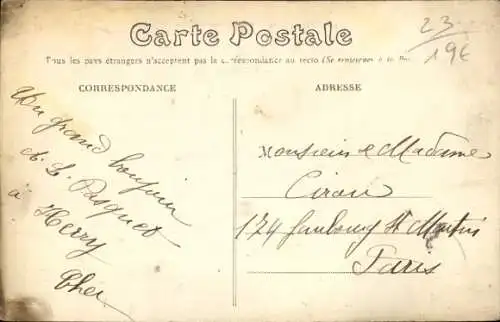 Carte Postale
23
19€
Tous les pays étrangers n'acceptent pas la correspondance au recto (Se renseigner à la
CORRESPONDANCE
ADRESSE
Un grand bonjour
A. L. Pasquet
à Herry
Cher
Monsieur & Madame
Ciran
174 faubourg St Martin
Paris